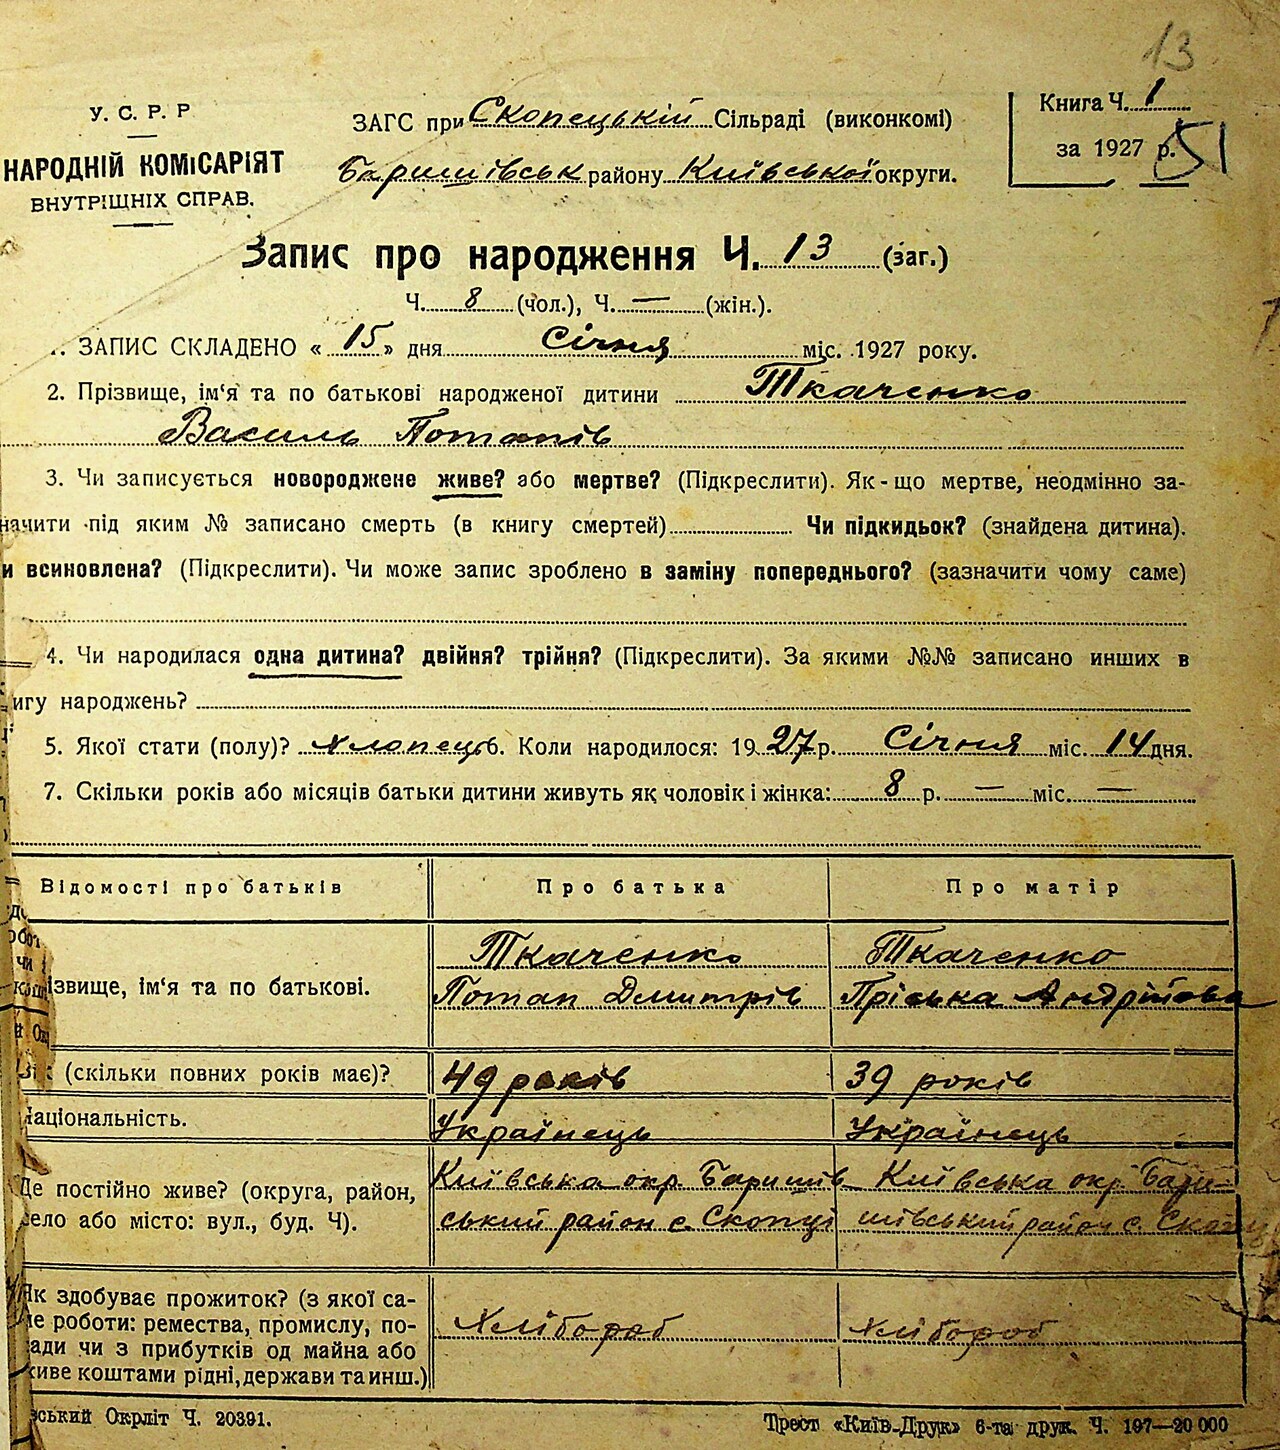 13
У. С. Р. Р
НАРОДНІЙ КОМІСАРІЯТ
ВНУТРІШНІХ СПРАВ.
ЗАГС при Скопецькій Сільраді (виконкомі)
Баришівськ району Київської округи.
Книга Ч. 1
за 1927 р.
51
Запис про народження Ч. 13 (заг.)
Ч. 8 (чол.), Ч. — (жін.).
1. ЗАПИС СКЛАДЕНО « 15 » дня Січня міс. 1927 року.
2. Прізвище, ім‘я та по батькові народженої дитини Ткаченко
Василь Потапів
3. Чи записується новороджене живе? або мертве? (Підкреслити). Як-що мертве, неодмінно за-
начити під яким № записано смерть (в книгу смертей) Чи підкидьок? (знайдена дитина).
и всиновлена? (Підкреслити). Чи може запис зроблено в заміну попереднього? (зазначити чому саме)
4. Чи народилася одна дитина? двійня? трійня? (Підкреслити). За якими №№ записано инших в
игу народжень?
5. Якої стати (полу)? Хлопець 6. Коли народилося: 1927 р. Січня міс. 14 дня.
7. Скільки років або місяців батьки дитини живуть як чоловік і жінка: 8 р. — міс. —
Відомості про батьків Про батька Про матір
ізвище, ім‘я та по батькові.
Ткаченко
Потап Дмитрів
Ткаченко
Пріська Андрійова
Вік (скільки повних років має)? 49 років 39 років
Національність. Українець Українець
Де постійно живе? (округа, район,
село або місто: вул., буд. Ч).
Київська окр Баришів
ський район с. Скопці
Київська окр. Бари-
шівський район с. Скопці
Як здобуває прожиток? (з якої са-
ме роботи: ремества, промислу, по-
ади чи з прибутків од майна або
живе коштами рідні, держави та инш.)
Хлібороб
Хлібороб
вський Окрліт Ч. 20391.
Трест «Київ-Друк» 6-та друк. Ч. 197—20 000